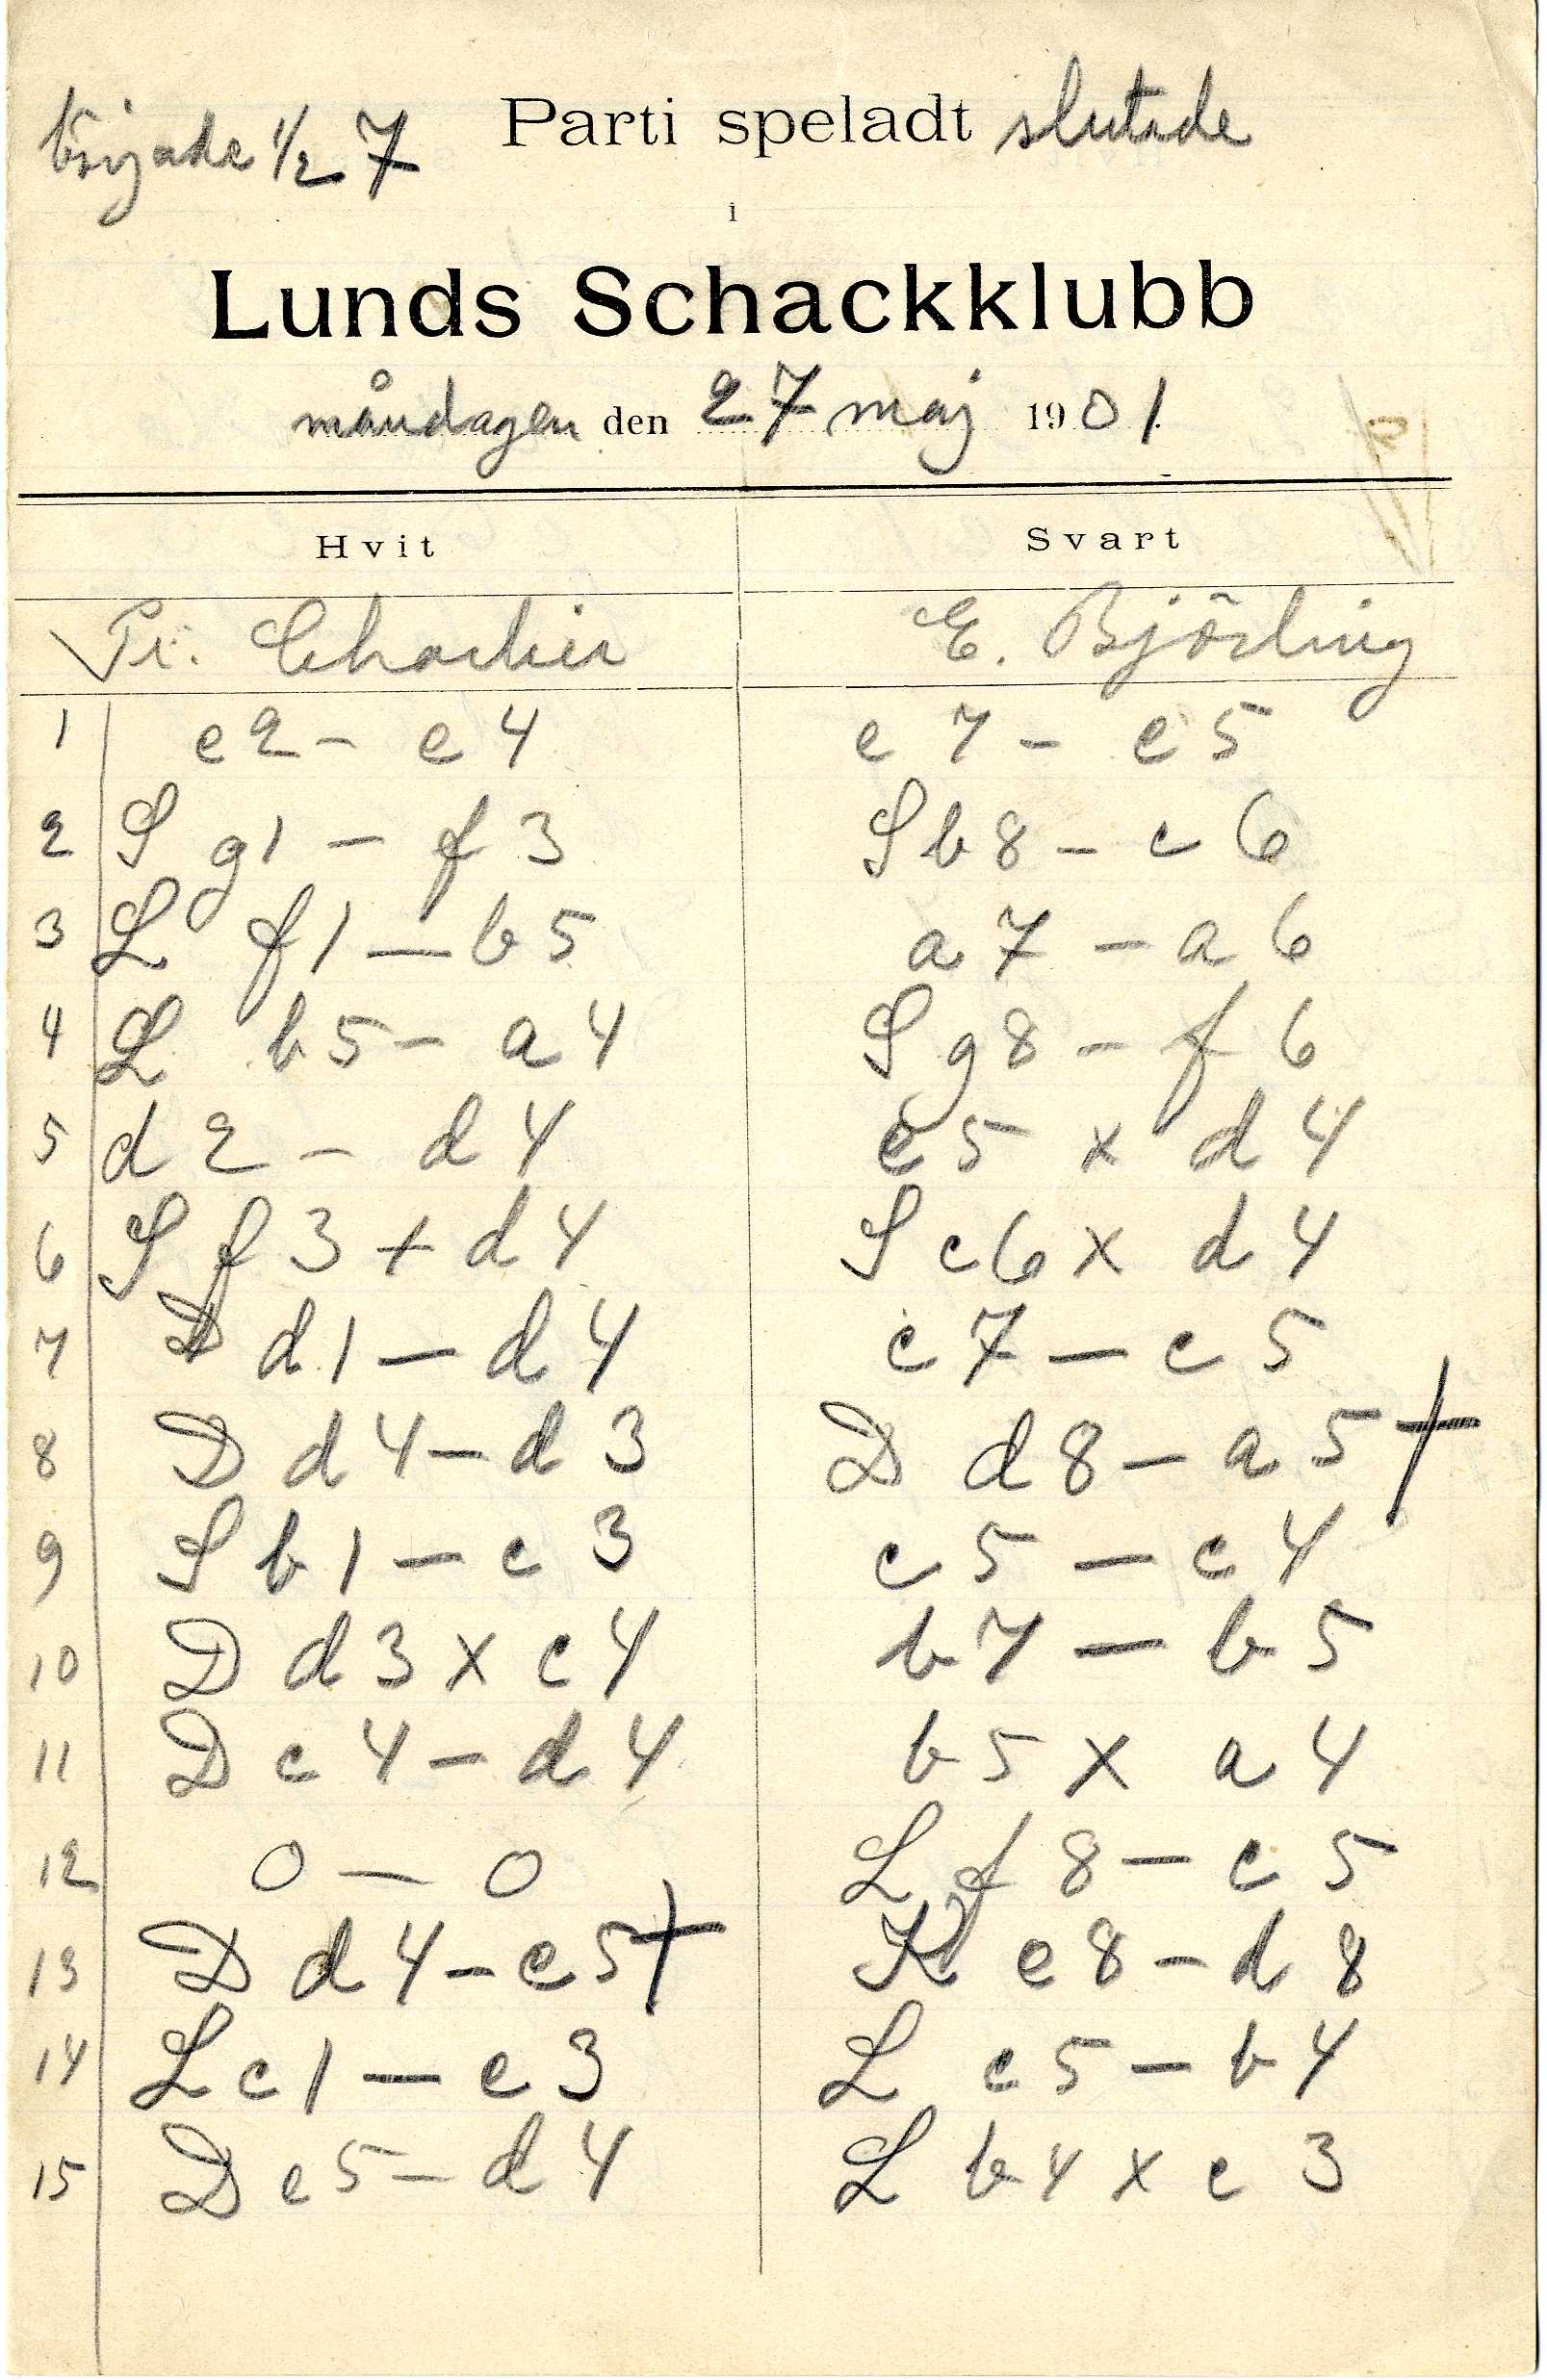 började 1/2 7 Parti speladt slutade
i
Lunds Schackklubb
måndagen den 27 maj 1901.
Hvit Svart
Pr. Charlier E. Björling
1 e2 - e4 e7 - e5
2 S g1 - f3 S b8 - c6
3 L f1 - b5 a7 - a6
4 L b5 - a4 S g8 - f6
5 d2 - d4 e5 x d4
6 S f3 + d4 S c6 x d4
7 D d1 - d4 c7 - c5
8 D d4 - d3 D d8 - a5+
9 S b1 - c3 c5 - c4
10 D d3 x c4 b7 - b5
11 D c4 - d4 b5 x a4
12 0 - 0 L f8 - c5
13 D d4 - e5+ K e8 - d8
14 L c1 - e3 L c5 - b4
15 D e5 - d4 L b4 x c3